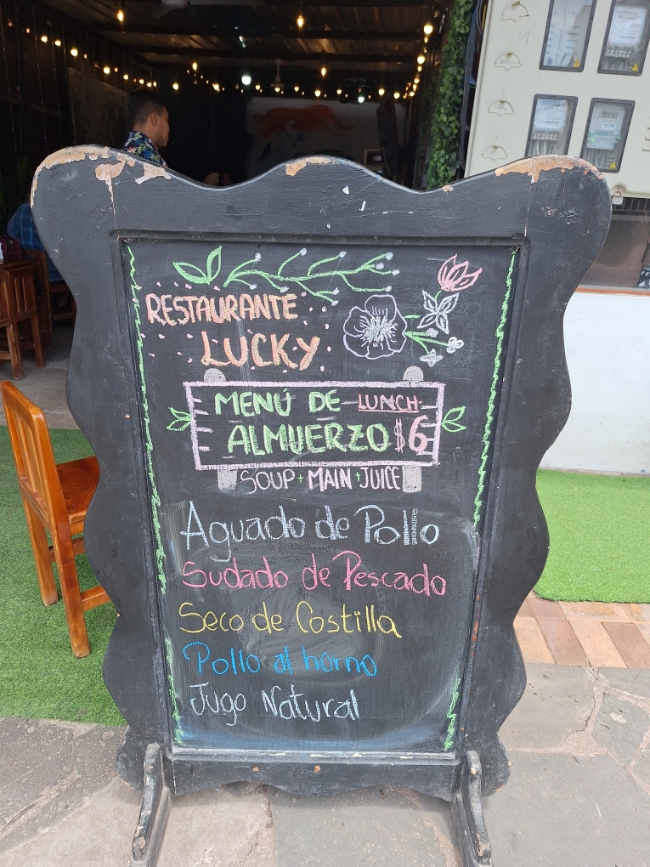 RESTAURANTE
LUCKY
MENÚ DE LUNCH
ALMUERZO $6
SOUP + MAIN + JUICE
Aguado de Pollo
Sudado de Pescado
Seco de Costilla
Pollo al horno
Jugo Natural